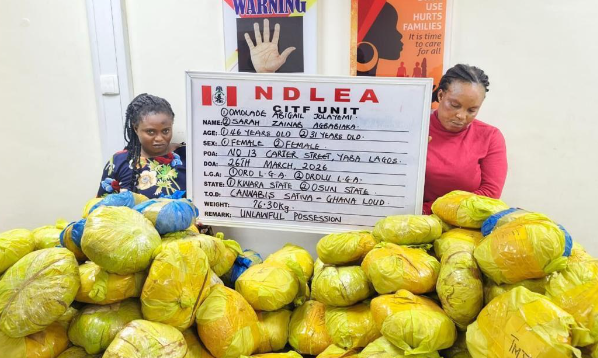 WARNING
USE
HURTS
FAMILIES
It is time
to care
for all
NDLEA
CITF UNIT
NAME: ① OMOLADE ABIGAIL JOLAYEMI
② SARAH ZAINAB AGBABIAKA
AGE: ① 46 YEARS OLD ② 31 YEARS OLD
SEX: ① FEMALE ② FEMALE
POA: NO 13 CARTER STREET, YABA LAGOS.
DOA: 26TH MARCH, 2026
L.G.A: ① ORO L.G.A ② OROLU L.G.A
STATE: ① KWARA STATE ② OSUN STATE
T.O.D: CANNABIS SATIVA - GHANA LOUD
WEIGHT: 76.30Kg
REMARK: UNLAWFUL POSSESSION